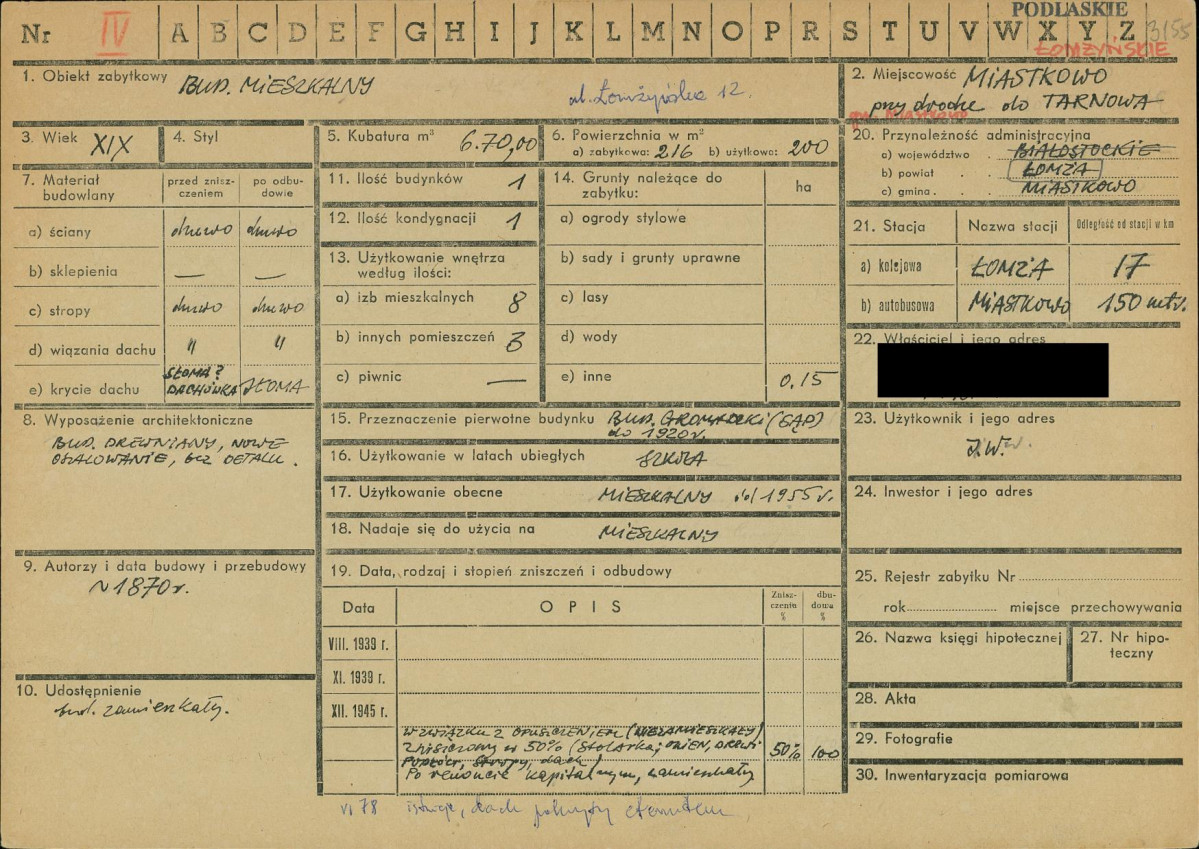 PODLASKIE
Nr IV A B C D E F G H I J K L M N O P R S T U V W X Y Z 3155
ŁOMŻYŃSKIE
1. Obiekt zabytkowy BUD. MIESZKALNY
ul. Łomżyńska 12.
2. Miejscowość MIASTKOWO
przy drodze do TARNOWA
gm. Miastkowo
3. Wiek XIX
4. Styl
5. Kubatura m³ 6.70,00
6. Powierzchnia w m²
a) zabytkowa: 216 b) użytkowa: 200
7. Materiał budowlany
przed zniszczeniem
po odbudowie
a) ściany drewo drewo
b) sklepienia — —
c) stropy drewo drewo
d) wiązania dachu " "
e) krycie dachu SŁOMA? DACHÓWKA SŁOMA
8. Wyposażenie architektoniczne
BUD. DREWNIANY, NOWE
OSZALOWANIE, bez DETALU.
9. Autorzy i data budowy i przebudowy
~1870 r.
10. Udostępnienie
bud. zamieszkały.
11. Ilość budynków 1
12. Ilość kondygnacji 1
13. Użytkowanie wnętrza
według ilości:
a) izb mieszkalnych 8
b) innych pomieszczeń 3
c) piwnic —
14. Grunty należące do
zabytku:
ha
a) ogrody stylowe
b) sady i grunty uprawne
c) lasy
d) wody
e) inne 0,15
15. Przeznaczenie pierwotne budynku BUD. GROMADZKI
do 1920 r.
16. Użytkowanie w latach ubiegłych SZKOŁA
17. Użytkowanie obecne MIESZKALNY od 1955 r.
18. Nadaje się do użycia na MIESZKALNY
19. Data, rodzaj i stopień zniszczeń i odbudowy
Data
OPIS
Zniszczenia %
dbudowa %
VIII. 1939 r.
XI. 1939 r.
XII. 1945 r.
W ZWIĄZKU Z OPUSZCZENIEM (NIEZAMIESZKAŁY)
zniszczony w 50% (Stolarka, OKIEN, DRZWI
PODŁÓG, STROPY, dach) 50% 100
Po remoncie kapitalnym, zamieszkały
VI 78 istnieje, dach pokryty eternitem
20. Przynależność administracyjna
a) województwo . BIAŁOSTOCKIE
b) powiat . . ŁOMŻA
c) gmina . . MIASTKOWO
21. Stacja
Nazwa stacji
Odległość od stacji w km
a) kolejowa ŁOMŻA 17
b) autobusowa MIASTKOWO 150 metr.
22. Właściciel i jego adres
23. Użytkownik i jego adres
J.W.
24. Inwestor i jego adres
25. Rejestr zabytku Nr
rok miejsce przechowywania
26. Nazwa księgi hipotecznej
27. Nr hipoteczny
28. Akta
29. Fotografie
30. Inwentaryzacja pomiarowa